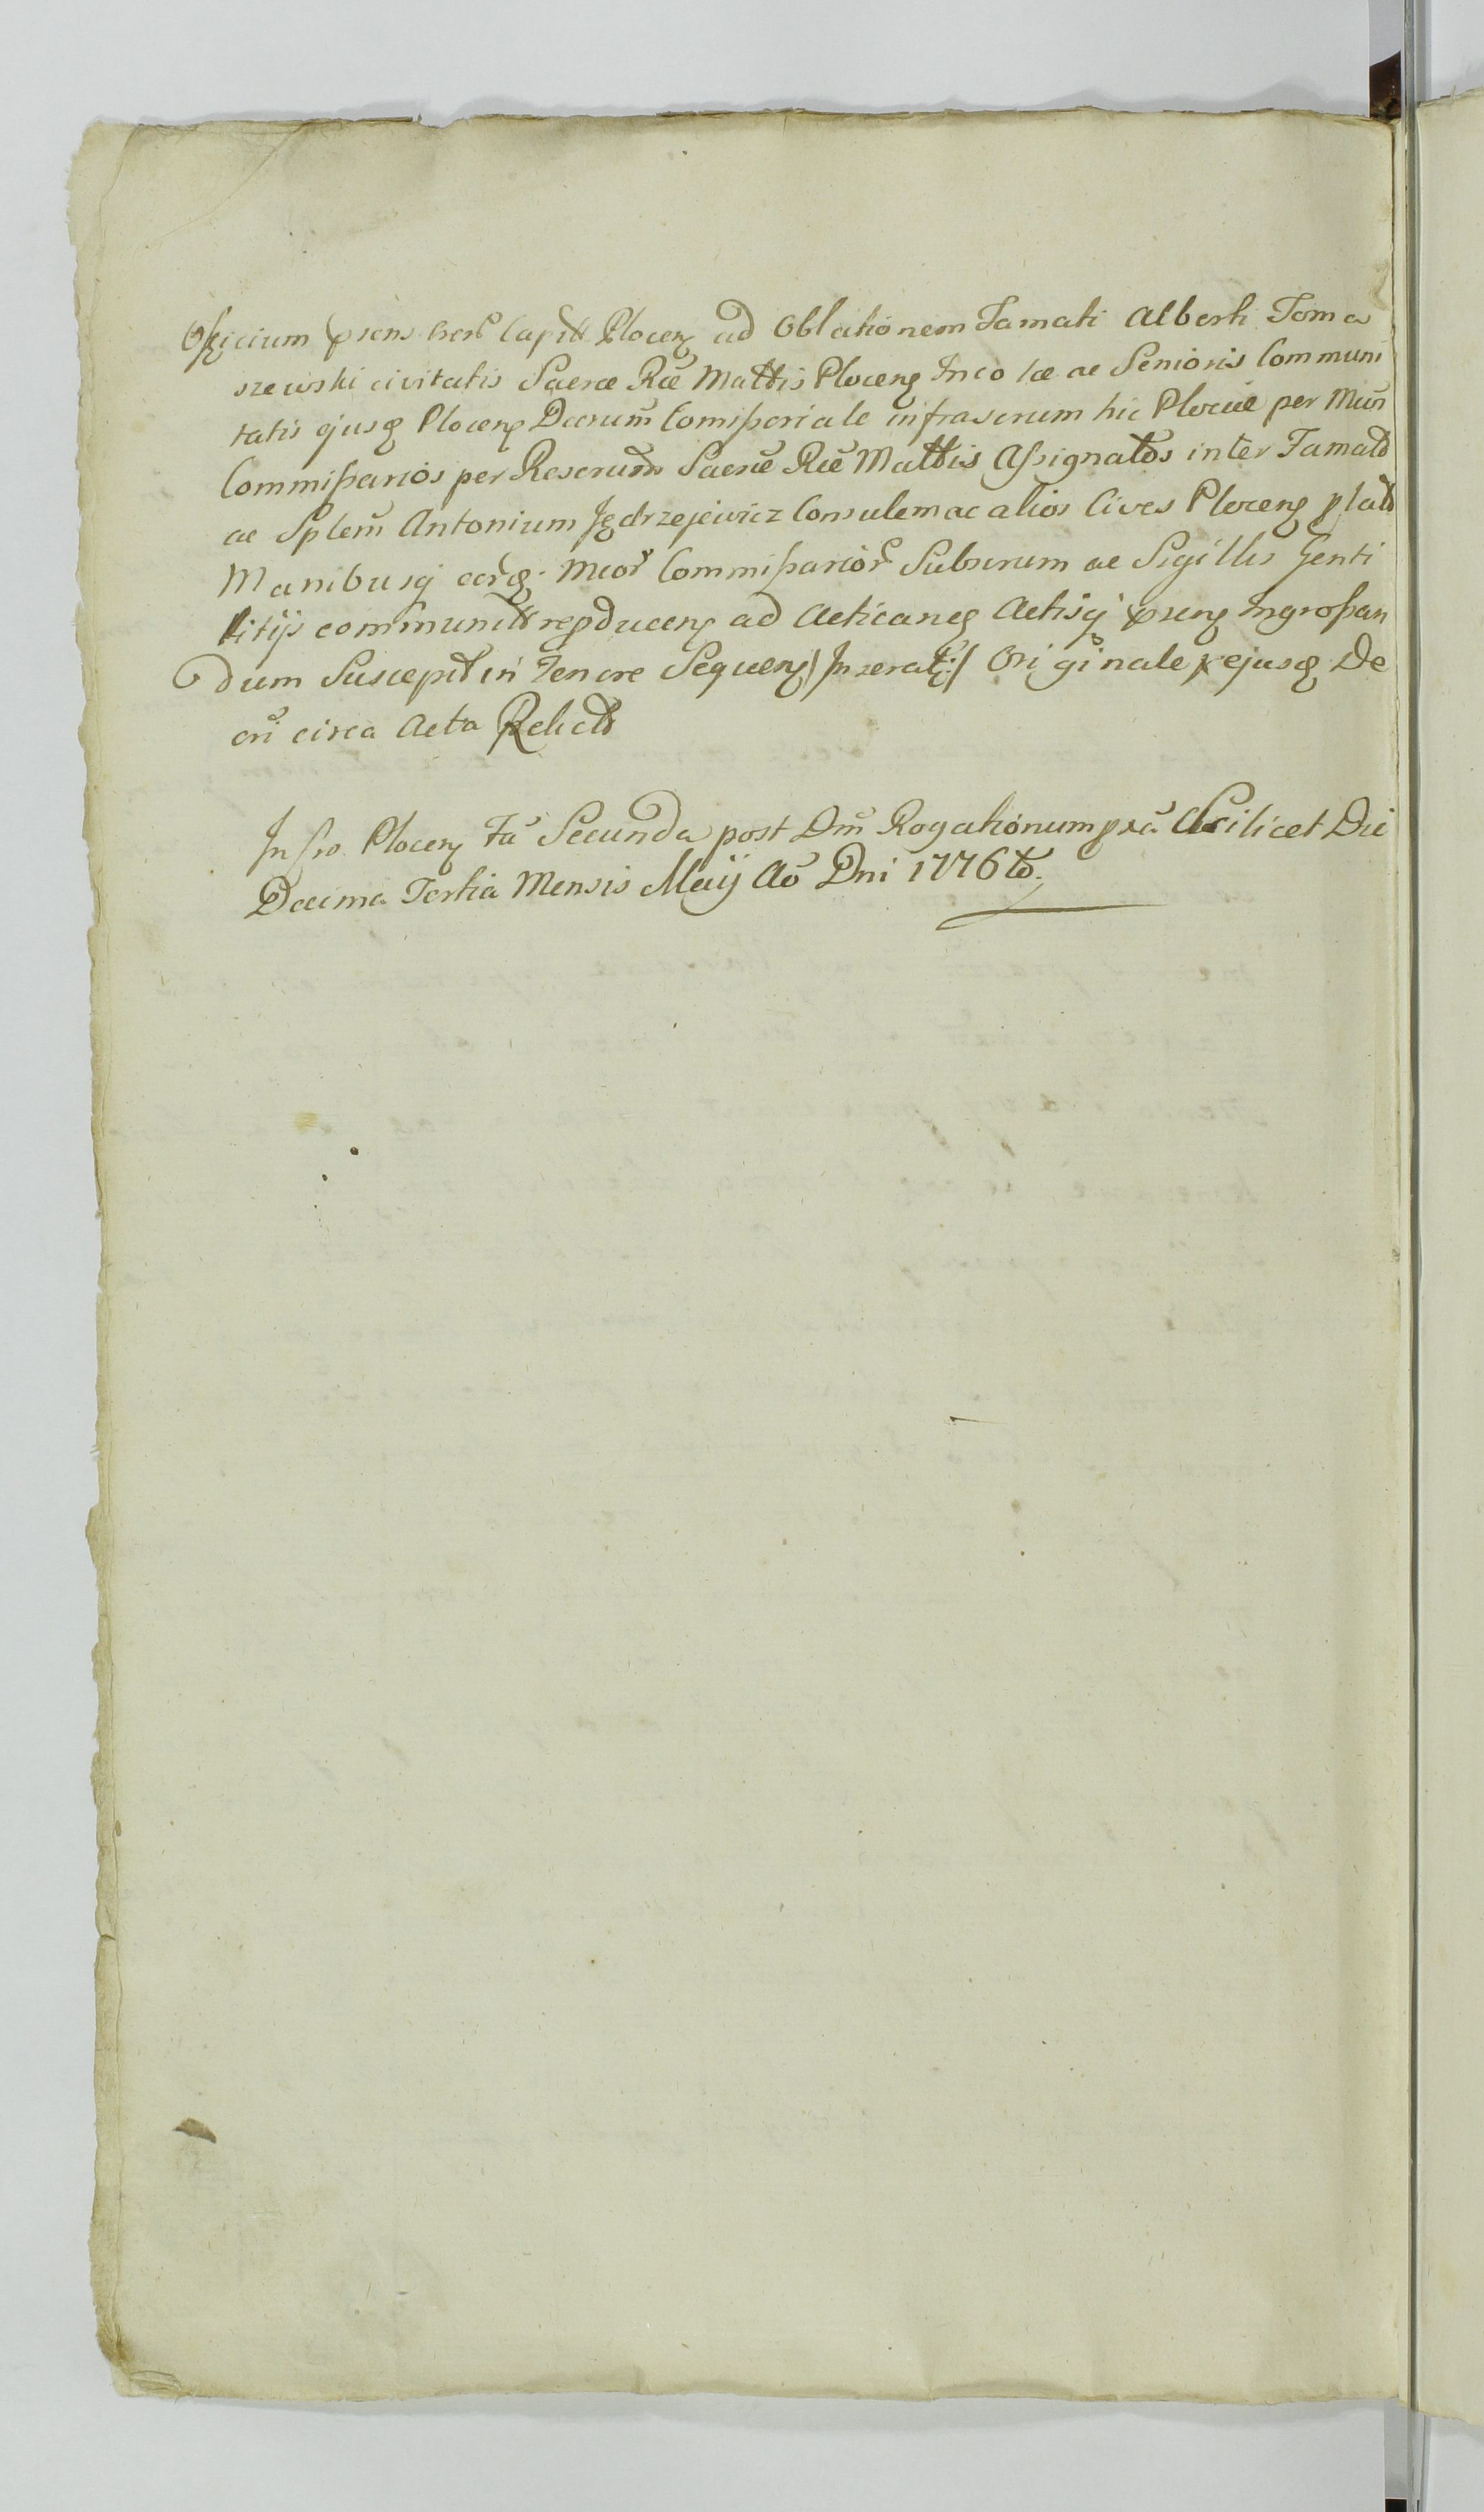 Officium prens Cap Plocen ad Oblationem Famati Alberti Toma
szewski civitatis Sacræ Ræ Mattis Plocen Incolæ ac Senioris Communi
tatis ejusq Plocen Decrum Comissoriale infrascrum hic Plociæ per
Commissarios per Rescrum Sacræ Ræ Mattis Assignatos inter Famatd
ac Splem Antonium Jędrzejewicz Consulem ac alios Cives Plocen
Manibusq Commissarior Subscrum ac Sigillis Genti
litijs communit repducen ad Acticanq Actisq prens Ingrossan
dum Suscepit in Tenore Sequen /: Inseratr :/ Originale ejusq De
cri circa Acta Relicto
In Cro Plocen Fa Secunda post Dm Rogationum pxa Scilicet Die
Decima Tertia Mensis Maij Ao Dni 1776to.